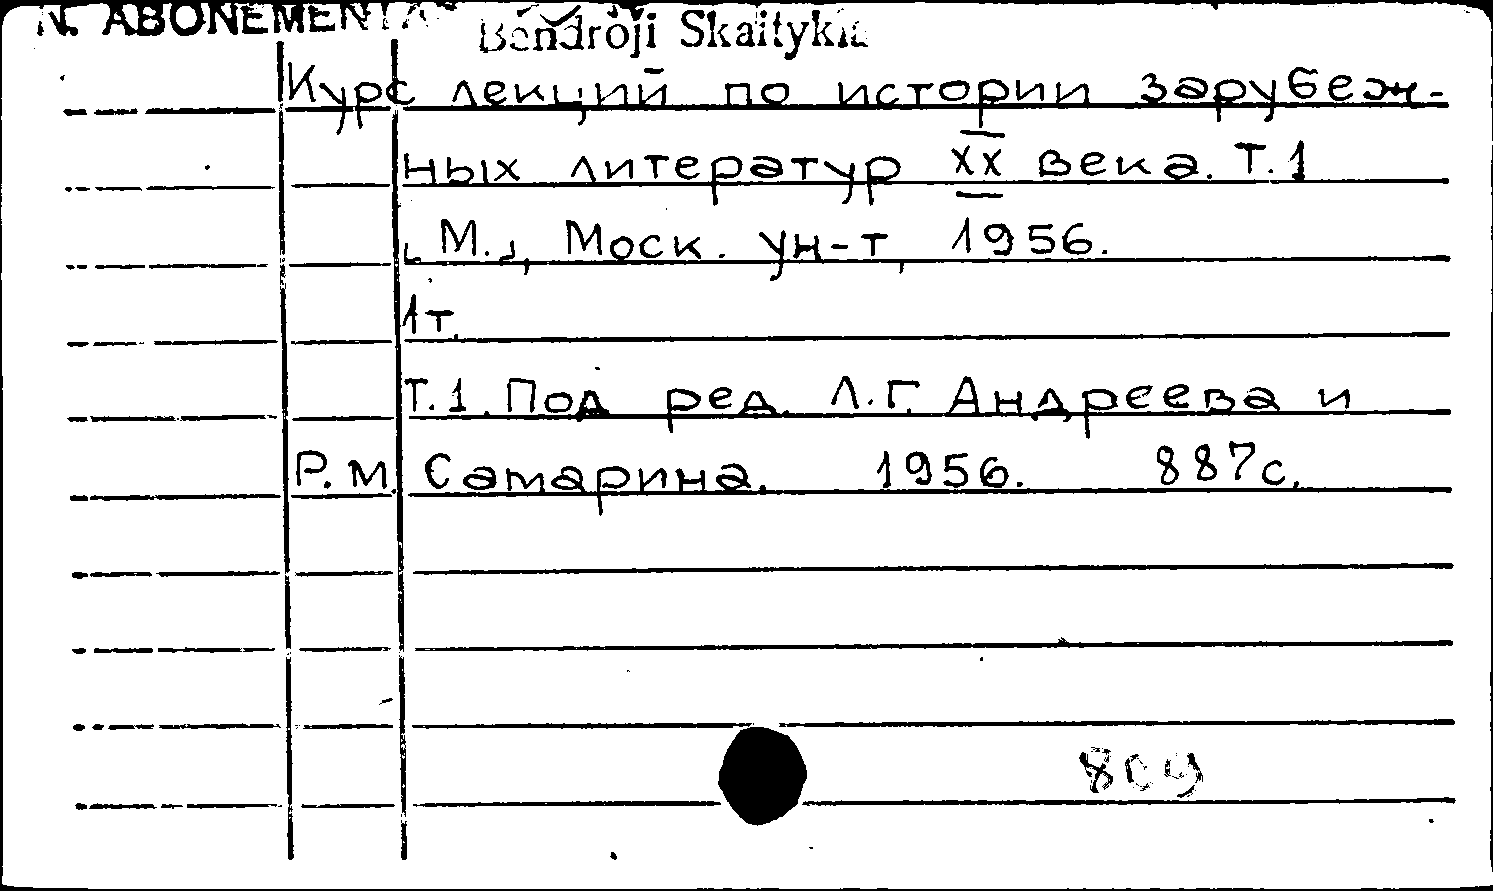 N. ABONEMENTAS
Bendroji Skaitykla
Курс лекций по истории зарубеж-
ных литератур XX века. Т.1
[М.], Моск. ун-т, 1956.
1т.
Т.1. Под ред. Л.Г. Андреева и
Р.М. Самарина. 1956. 887с.
809